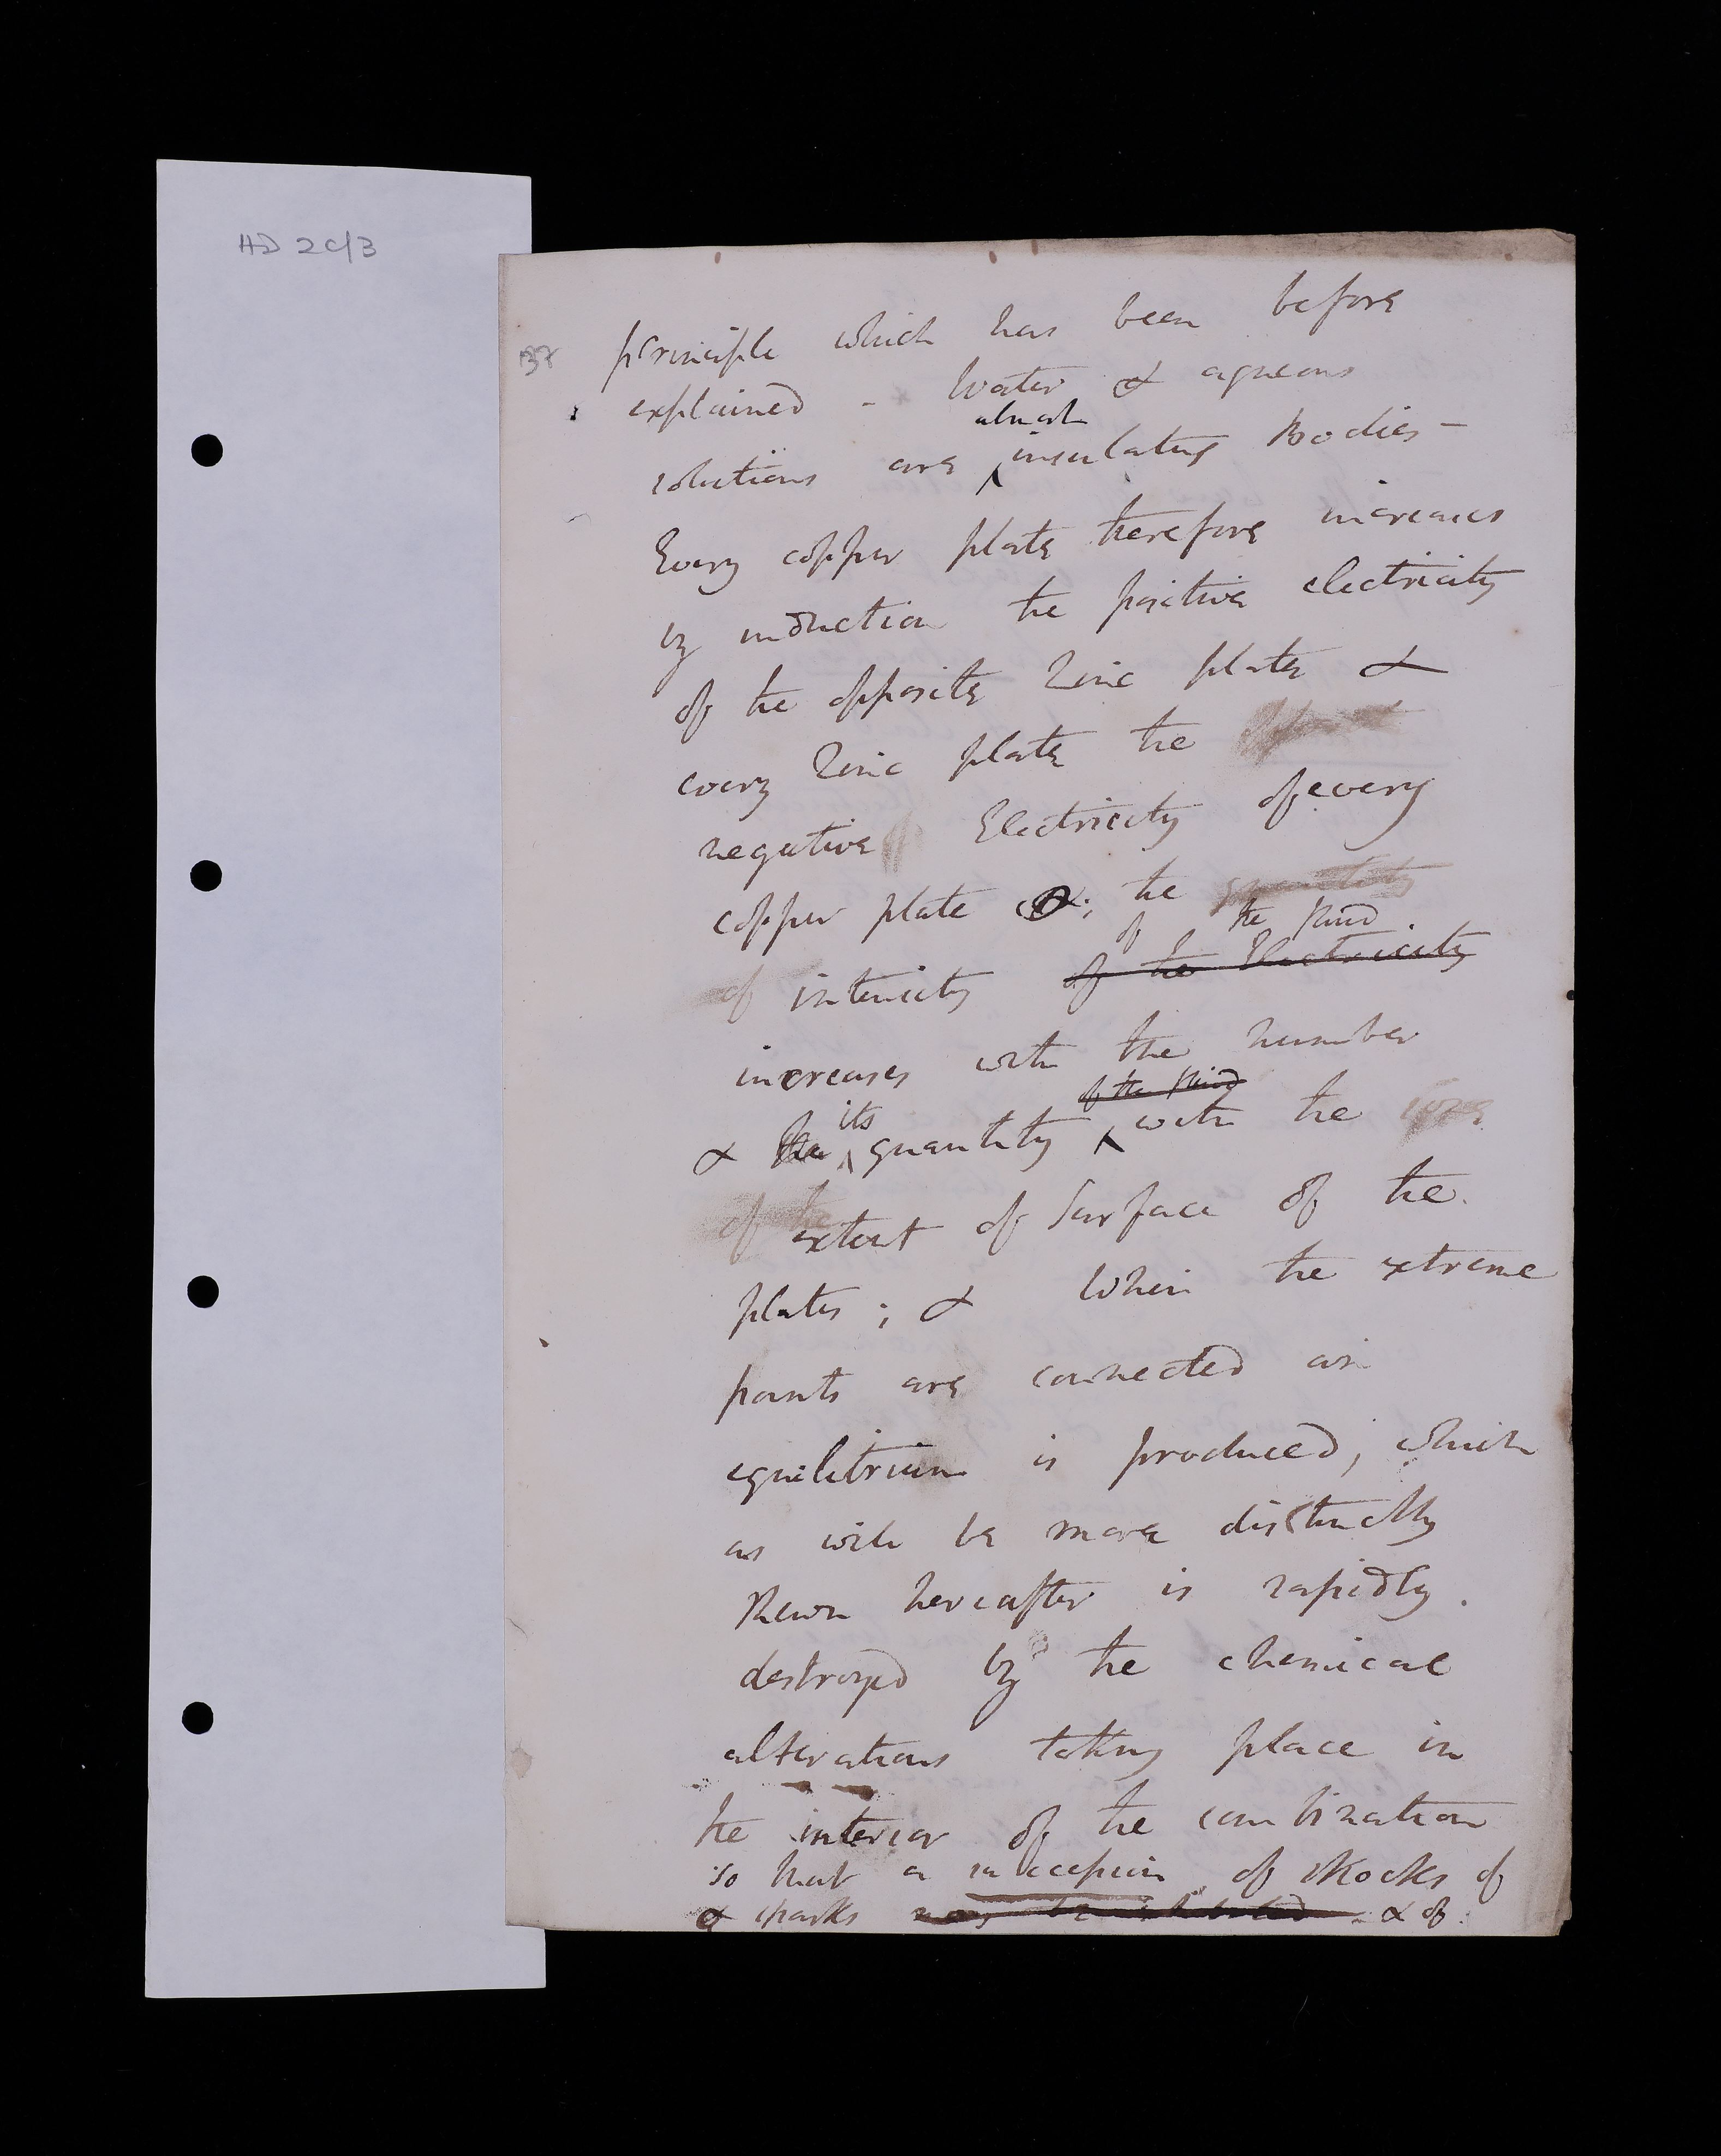 HD 2c/3
37
principle which has been before
explained - Water & aqueous
almost
solutions are insulating Bodies -
Every copper plate therefore increases
by induction the positive electricity
of the opposite Zinc plate &
every Zinc plate the
negative Electricity of every
copper plate &; the quantity
of the kind
of intensity of the Electricity
increases with the number
of the kind
its
& the quantity with the
of the extent of Surface of the
plates ; & When the extreme
points are connected an
equilibrium is produced, which
as will be more distinctly
shewn hereafter is rapidly
destroyed by the chemical
alterations taking place in
the interior of the combination
so that a succession of shocks of
& sparks may be exhibited & of